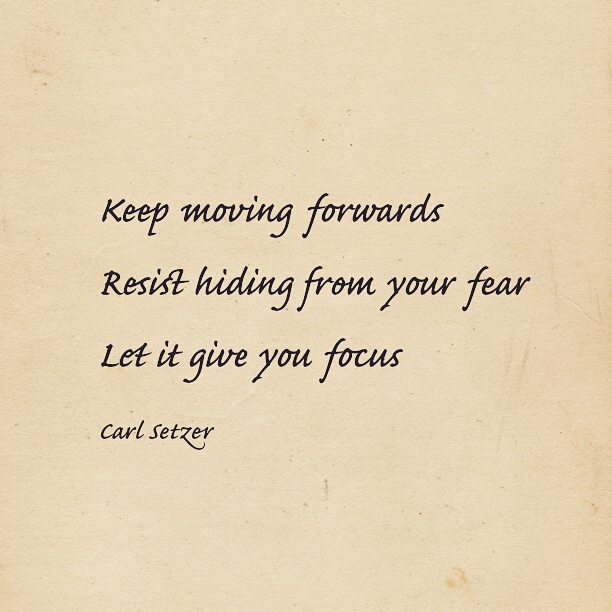 Keep moving forwards
Resist hiding from your fear
Let it give you focus
Carl Setzer